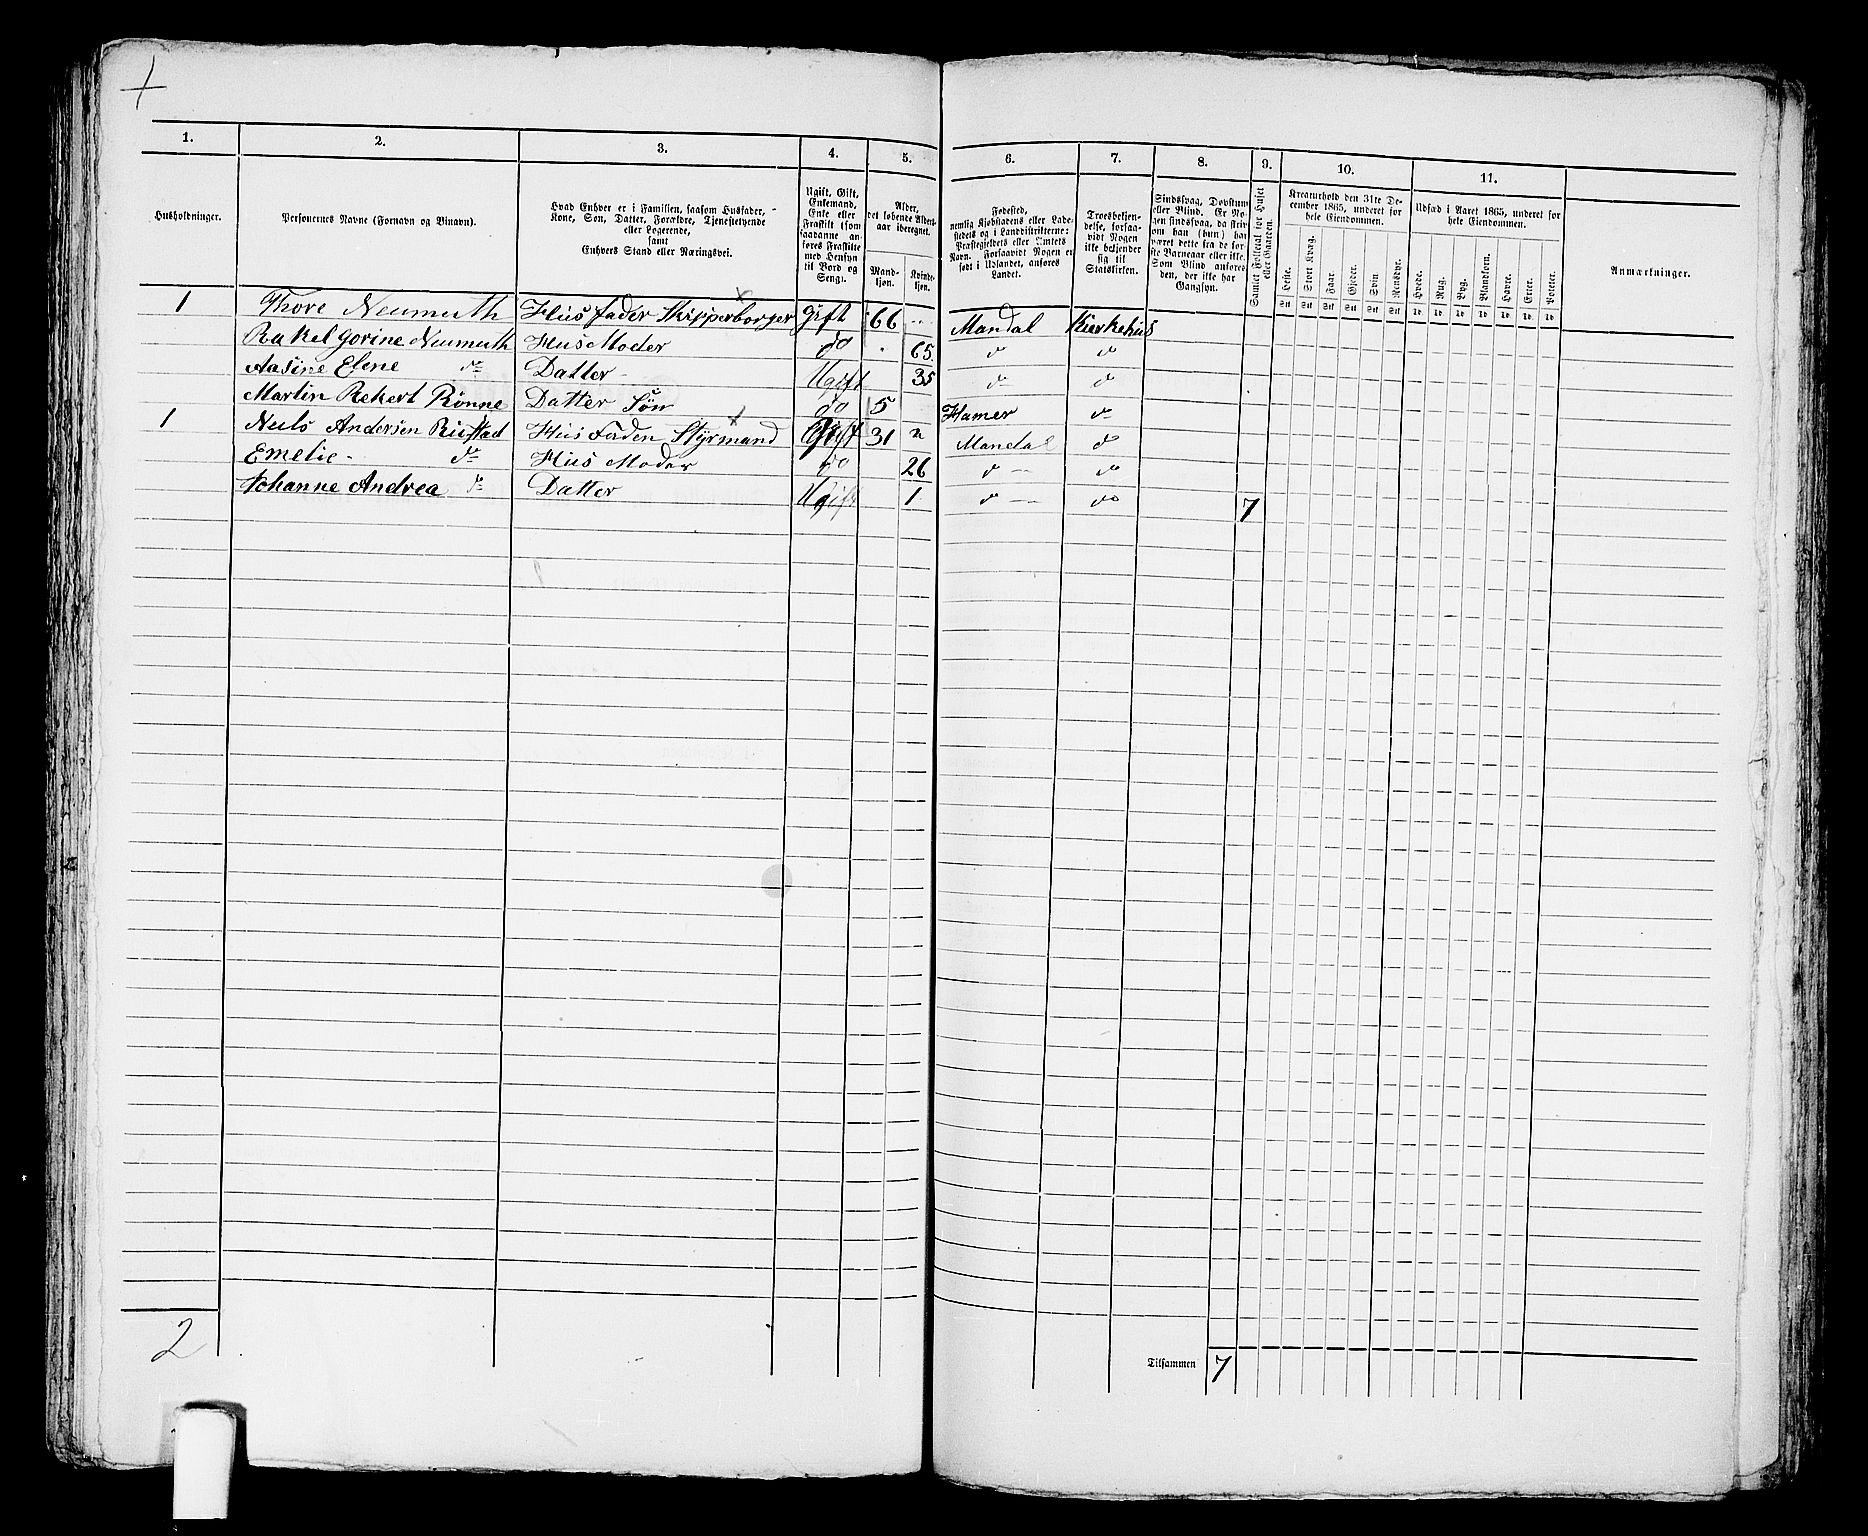 1. 2. 3. 4. 5. 6. 7. 8. 9. 10. 11.
Husholdninger.
Personernes Navne (Fornavn og Binavn).
Hvad Enhver er i Familien, saasom Husfader,
Kone, Søn, Datter, Forældre, Tjenestetyende
eller Logerende,
samt
Enhvers Stand eller Næringsvei.
Ugift, Gift,
Enkemand,
Enke eller
Fraskilt (som
saadanne an-
føres Fraskilte
med Hensyn
til Bord og
Seng).
Alder,
det løbende Alders-
aar iberegnet.
Mand-
kjøn.
Kvinde-
kjøn.
Fødested,
nemlig Kjøbstadens eller Lade-
stedets og i Landdistrikterne:
Præstegjeldets eller Amtets
Navn. Forsaavidt Nogen er
født i Udlandet, anføres
Landet.
Troesbekjen-
delse, forsaa-
vidt Nogen
ikke bekjender
sig til
Statskirken.
Sindssvag, Døvstum
eller Blind. Er No-
gen sindssvag, da skriv
om han (hun) har
været dette fra de før-
ste Barneaar eller ikke.
Som Blind anføres
den, der ikke har
Gangsyn.
Samlet Folketal for Huset
eller Gaarden.
Kreaturhold den 31te De-
cember 1865, underet for
hele Eiendommen.
Heste. Stort Kvæg. Faar. Gjeder. Svin. Rensdyr.
Udsæd i Aaret 1865, underet for
hele Eiendommen.
Hvede. Rug. Byg. Blandkorn. Havre. Erter. Poteter.
Anmærkninger.
1 Thore Neumuth Hus fader Skipperborger Gift 66 Mandal Kierkehus
Rakel Gorine Neumuth Hus Moder do 65 do do
Aasine Elene do Datter Ugift 35 do do
Martin Rekert Rönne Datter Søn do 5 Hamer do
1 Neils Andersen Riistad Hus Faden Styrmand Gift 31 Mandal do
Emelie do Hus Moder do 26 do do
Johanne Andrea do Datter Ugift 1 do do 7
2
Tilsammen 7